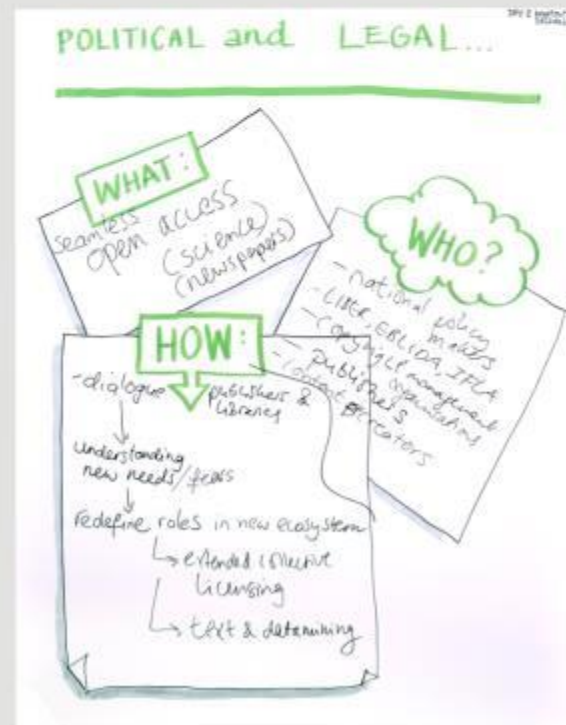 POLITICAL and LEGAL...
WHAT:
seamless
open access
(science)
(newspapers)
WHO?
- national policy
makers
- LIBER, EBLIDA, IFLA
- copyright management
organisations
- publishers
- content creators
HOW:
- dialogue publishers &
libraries
understanding
new needs/fears
redefine roles in new ecosystem
extended collective
licensing
text & datamining